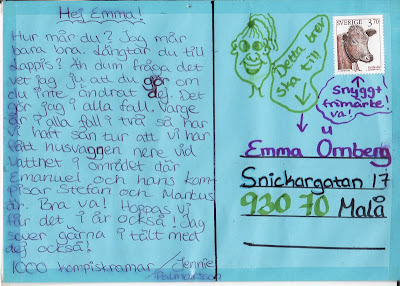 Hej Emma!
Hur mår du? Jag mår
bara bra. Längtar du till
Lappis? Äh dum fråga det
vet jag ju att du gör om
du inte ändrat dej. Det
gör jag i alla fall. Varge
år i alla fall i två så har
vi haft sån tur att vi har
fått husvagnen nere vid
vattnet i området där
Emanuel och hans kom-
pisar Stefan och Marcus
är. Bra va! Hoppas vi
får det i år också! Jag
sover gärna i tält med
dej också!
1000 kompiskramar
/Jennie
Palmqvist
Detta brev
ska till
SVERIGE 3,70
Snyggt
frimärke
va!
Emma Omberg
Snickargatan 17
930 70 Malå